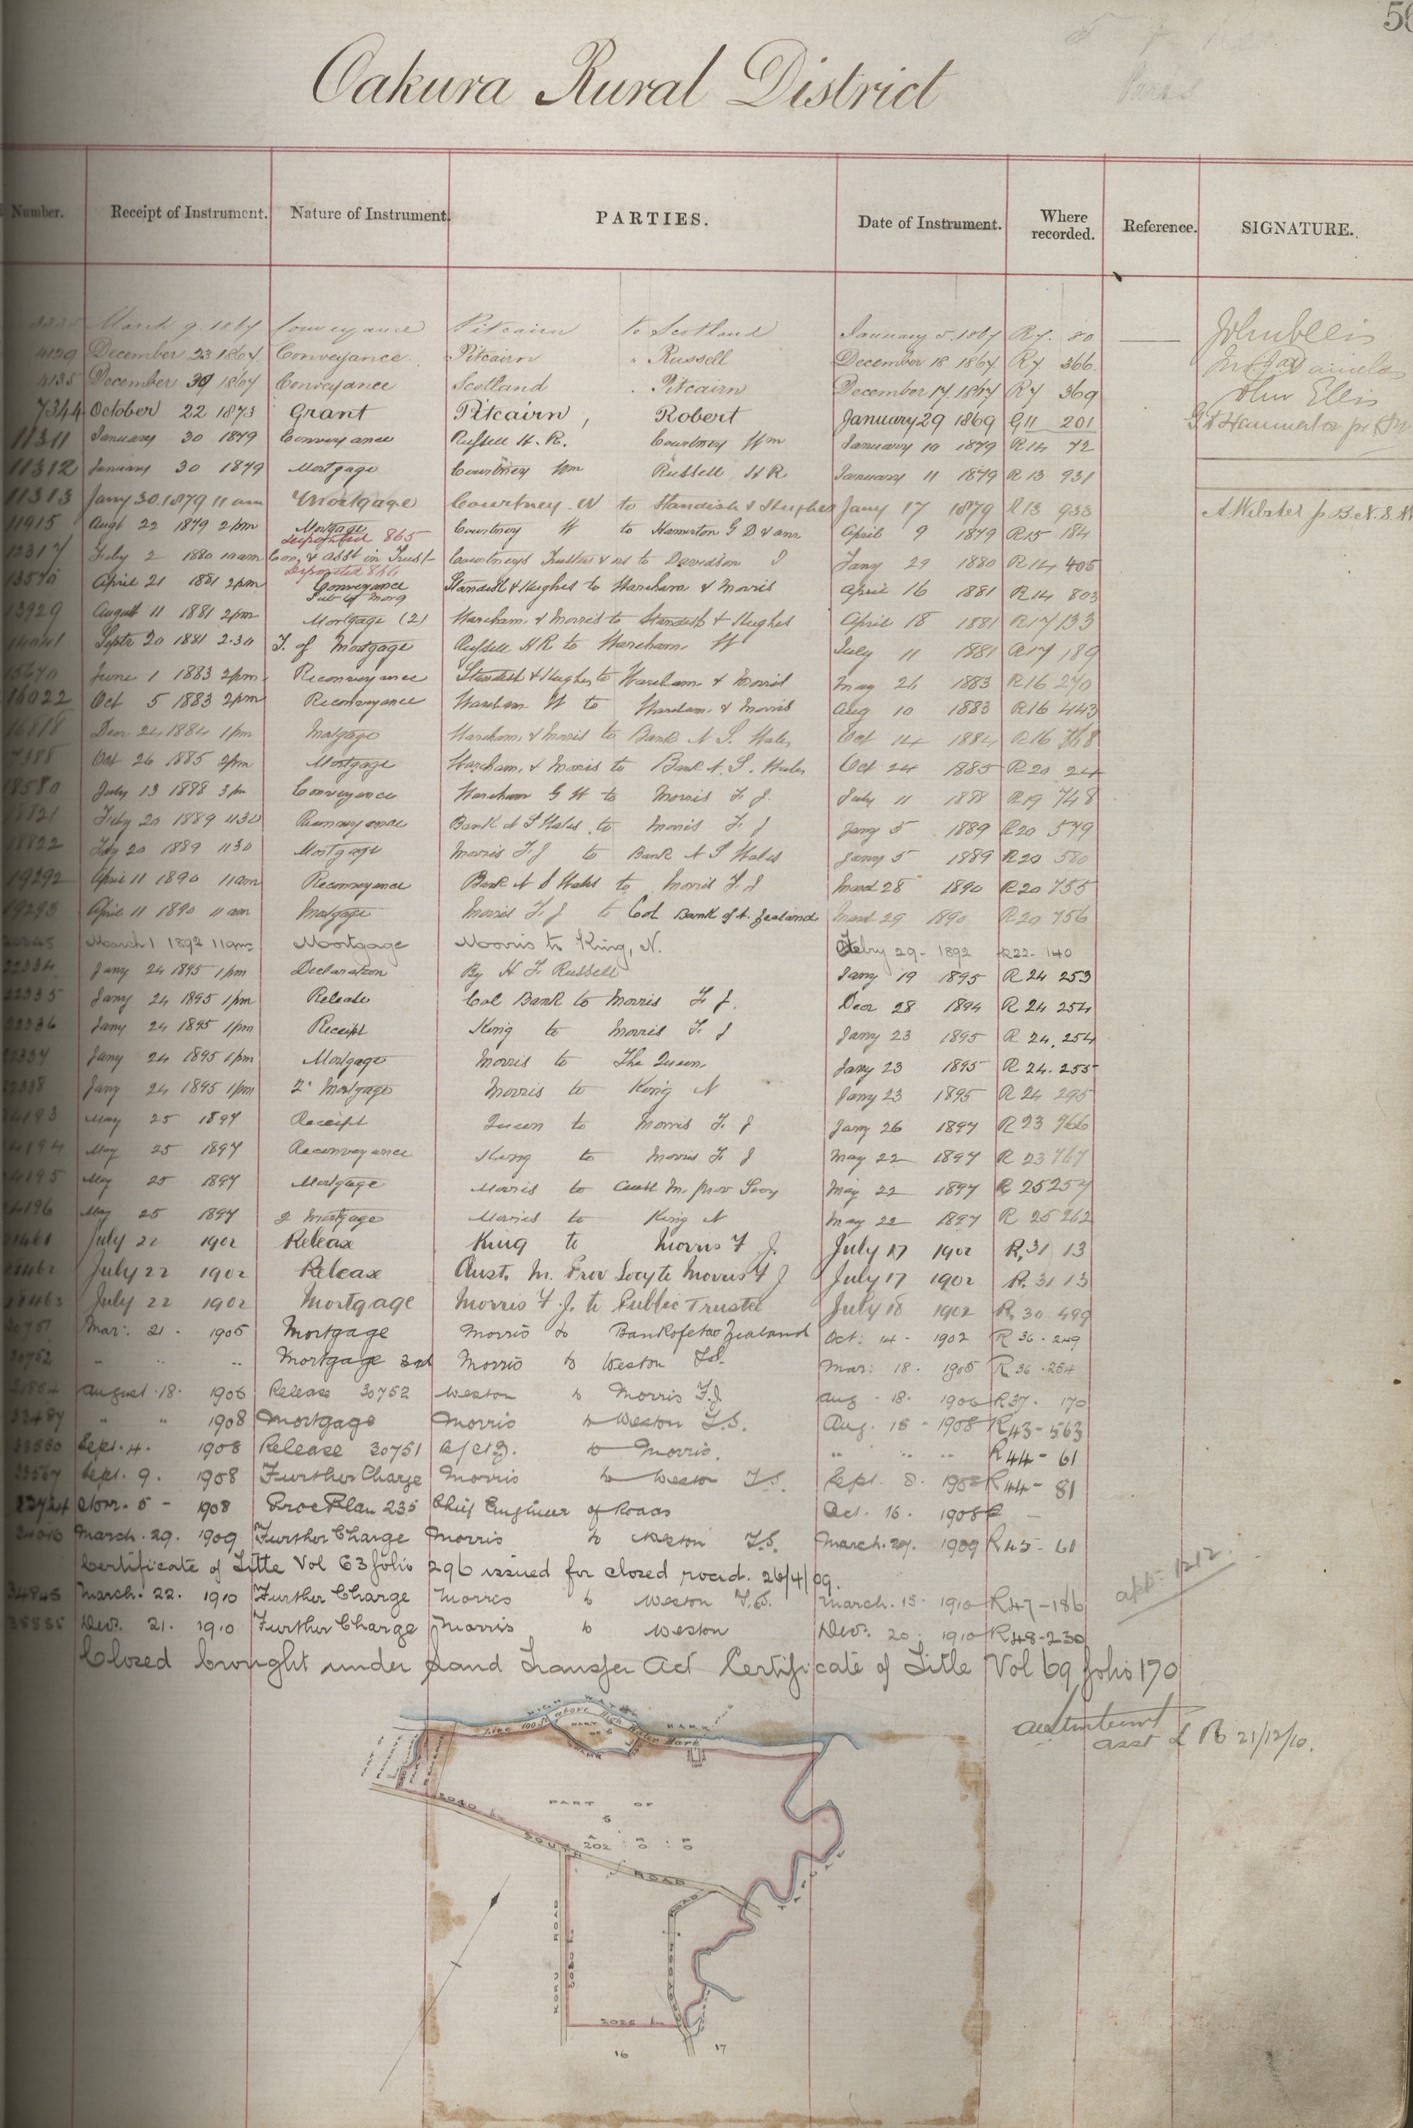 56
Oakura Rural District
Number. Receipt of Instrument. Nature of Instrument. PARTIES. Date of Instrument. Where recorded. Reference. SIGNATURE.
March 9 1867 Conveyance Pitcairn to Scotland January 5 1867 R7. 80 John Ellis
4129 December 23 1867 Conveyance Pitcairn " Russell December 18 1867 R7 366
4135 December 30 1867 Conveyance Scotland . Pitcairn December 17 1867 R7 369 John Ellis
7344 October 22 1873 Grant Pitcairn, Robert January 29 1869 G11 201
11311 January 30 1879 Conveyance Russell H. R. Courtney Wm January 10 1879 R14 72
11312 January 30 1879 Mortgage Courtney Wm Russell H R January 11 1879 R13 931
11313 Jany 30. 1879 11 am Mortgage Courtney W to Standish & Hughes Jany 17 1879 R13 933 A Webster
11915 Augt 22 1879 2pm Mortgage Courtney W to Hamerton G D & anr April 9 1879 R15 184
Deposited 865
12317 July 2 1880 10 am Con. & asst in Trust Courtneys Trustees & ors to Davidson J Jany 29 1880 R14 405
Deposited 866
13570 April 21 1881 2pm Conveyance Standish & Hughes to Wareham & Morris April 16 1881 R14 803
Sub of Morg
13929 August 11 1881 2pm Mortgage (2) Wareham & Morris to Standish & Hughes April 18 1881 R17 133
14041 Septr 20 1881 2.30 T. of Mortgage Russell H R to Wareham W July 11 1881 R17 189
15670 June 1 1883 2pm Reconveyance Standish & Hughes to Wareham & Morris May 26 1883 R16 270
16022 Oct 5 1883 2pm Reconveyance Wareham W to Wareham & Morris Aug 10 1883 R16 443
16818 Decr 24 1884 1pm Mortgage Wareham & Morris to Bank N. S. Wales Oct 14 1884 R16 768
Oct 26 1885 2pm Mortgage Wareham & Morris to Bank N. S. Wales Oct 24 1885 R20 24
18580 July 13 1888 3pm Conveyance Wareham G W to Morris F. J. July 11 1888 R19 748
18821 Feby 20 1889 1130 Reconveyance Bank N S Wales to Morris F. J Jany 5 1889 R20 579
18822 Feby 20 1889 1130 Mortgage Morris F. J to Bank N S Wales Jany 5 1889 R20 580
19292 April 11 1890 11am Reconveyance Bank N S Wales to Morris F. J March 28 1890 R20 755
19293 April 11 1890 11 am Mortgage Morris F. J to Col Bank of N. Zealand March 29 1890 R20 756
March 1 1892 11am Mortgage Morris to King, N. Feby 29 - 1892 R22. 140
22334 Jany 24 1895 1pm Declaration By H F. Russell Jany 19 1895 R 24 253
22335 Jany 24 1895 1pm Release Col Bank to Morris F. J. Decr 28 1894 R 24 254
22336 Jany 24 1895 1pm Receipt King to Morris F. J Jany 23 1895 R 24. 254
22337 Jany 24 1895 1pm Mortgage Morris to The Queen Jany 23 1895 R 24. 255
22338 Jany 24 1895 1pm 2d Mortgage Morris to King N Jany 23 1895 R 24 295
24193 May 25 1897 Receipt Queen to Morris F. J Jany 26 1897 R 23 766
24194 May 25 1897 Reconveyance King to Morris F. J May 22 1897 R 23 767
24195 May 25 1897 Mortgage Morris to Aust M. prov Socy May 22 1897 R 25 257
24196 May 25 1897 2 Mortgage Morris to King N May 22 1897 R 25 262
July 22 1902 Release King to Morris F J. July 17 1902 R. 31 13
July 22 1902 Release Aust. M. Prov Socy to Morris F J July 17 1902 R. 31 13
July 22 1902 Mortgage Morris F. J. to Public Trustee July 18 1902 R. 30 499
30751 Mar: 21. 1905 Mortgage Morris to Bank of New Zealand Oct: 14 - 1902 R 36 - 249
30752 " " " Mortgage 3rd Morris to Weston T.S. Mar: 18. 1905 R 36 - 254
August 18. 1906 Release 30752 Weston to Morris F.J. Aug - 18. 1906 R37 - 170
33487 " " 1908 Mortgage Morris to Weston T.S. Aug. 15 - 1908 R43 - 563
Sept. 4. 1908 Release 30751 B of N.Z. to Morris. " " " R44 - 61
33567 Sept. 9. 1908 Further Charge Morris to Weston T.S. Sept. 8. 1908 R44 - 81
Nov. 5 - 1908 Proc Plan 235 Chief Engineer of Roads Oct. 16. 1908 R -
March. 29. 1909 Further Charge Morris to Weston T.S. March. 27. 1909 R45 - 61
Certificate of Title Vol 63 folio 296 issued for closed road. 26/4/09.
app: 1212
34845 March. 22. 1910 Further Charge Morris to Weston T.S. March. 15. 1910 R47 - 186
Decr. 21. 1910 Further Charge Morris to Weston Decr. 20. 1910 R48 - 230
Closed brought under Land Transfer Act Certificate of Title Vol 69 folio 170
asst L R 21/12/10.
HIGH WATER MARK
Line 100 ft above High Water Mark
PART OF 5
PART OF
5
A R P
202 : 0 : 0
2040 Lks
SOUTH ROAD
KORU ROAD
ROAD
2025 Lks
16 17